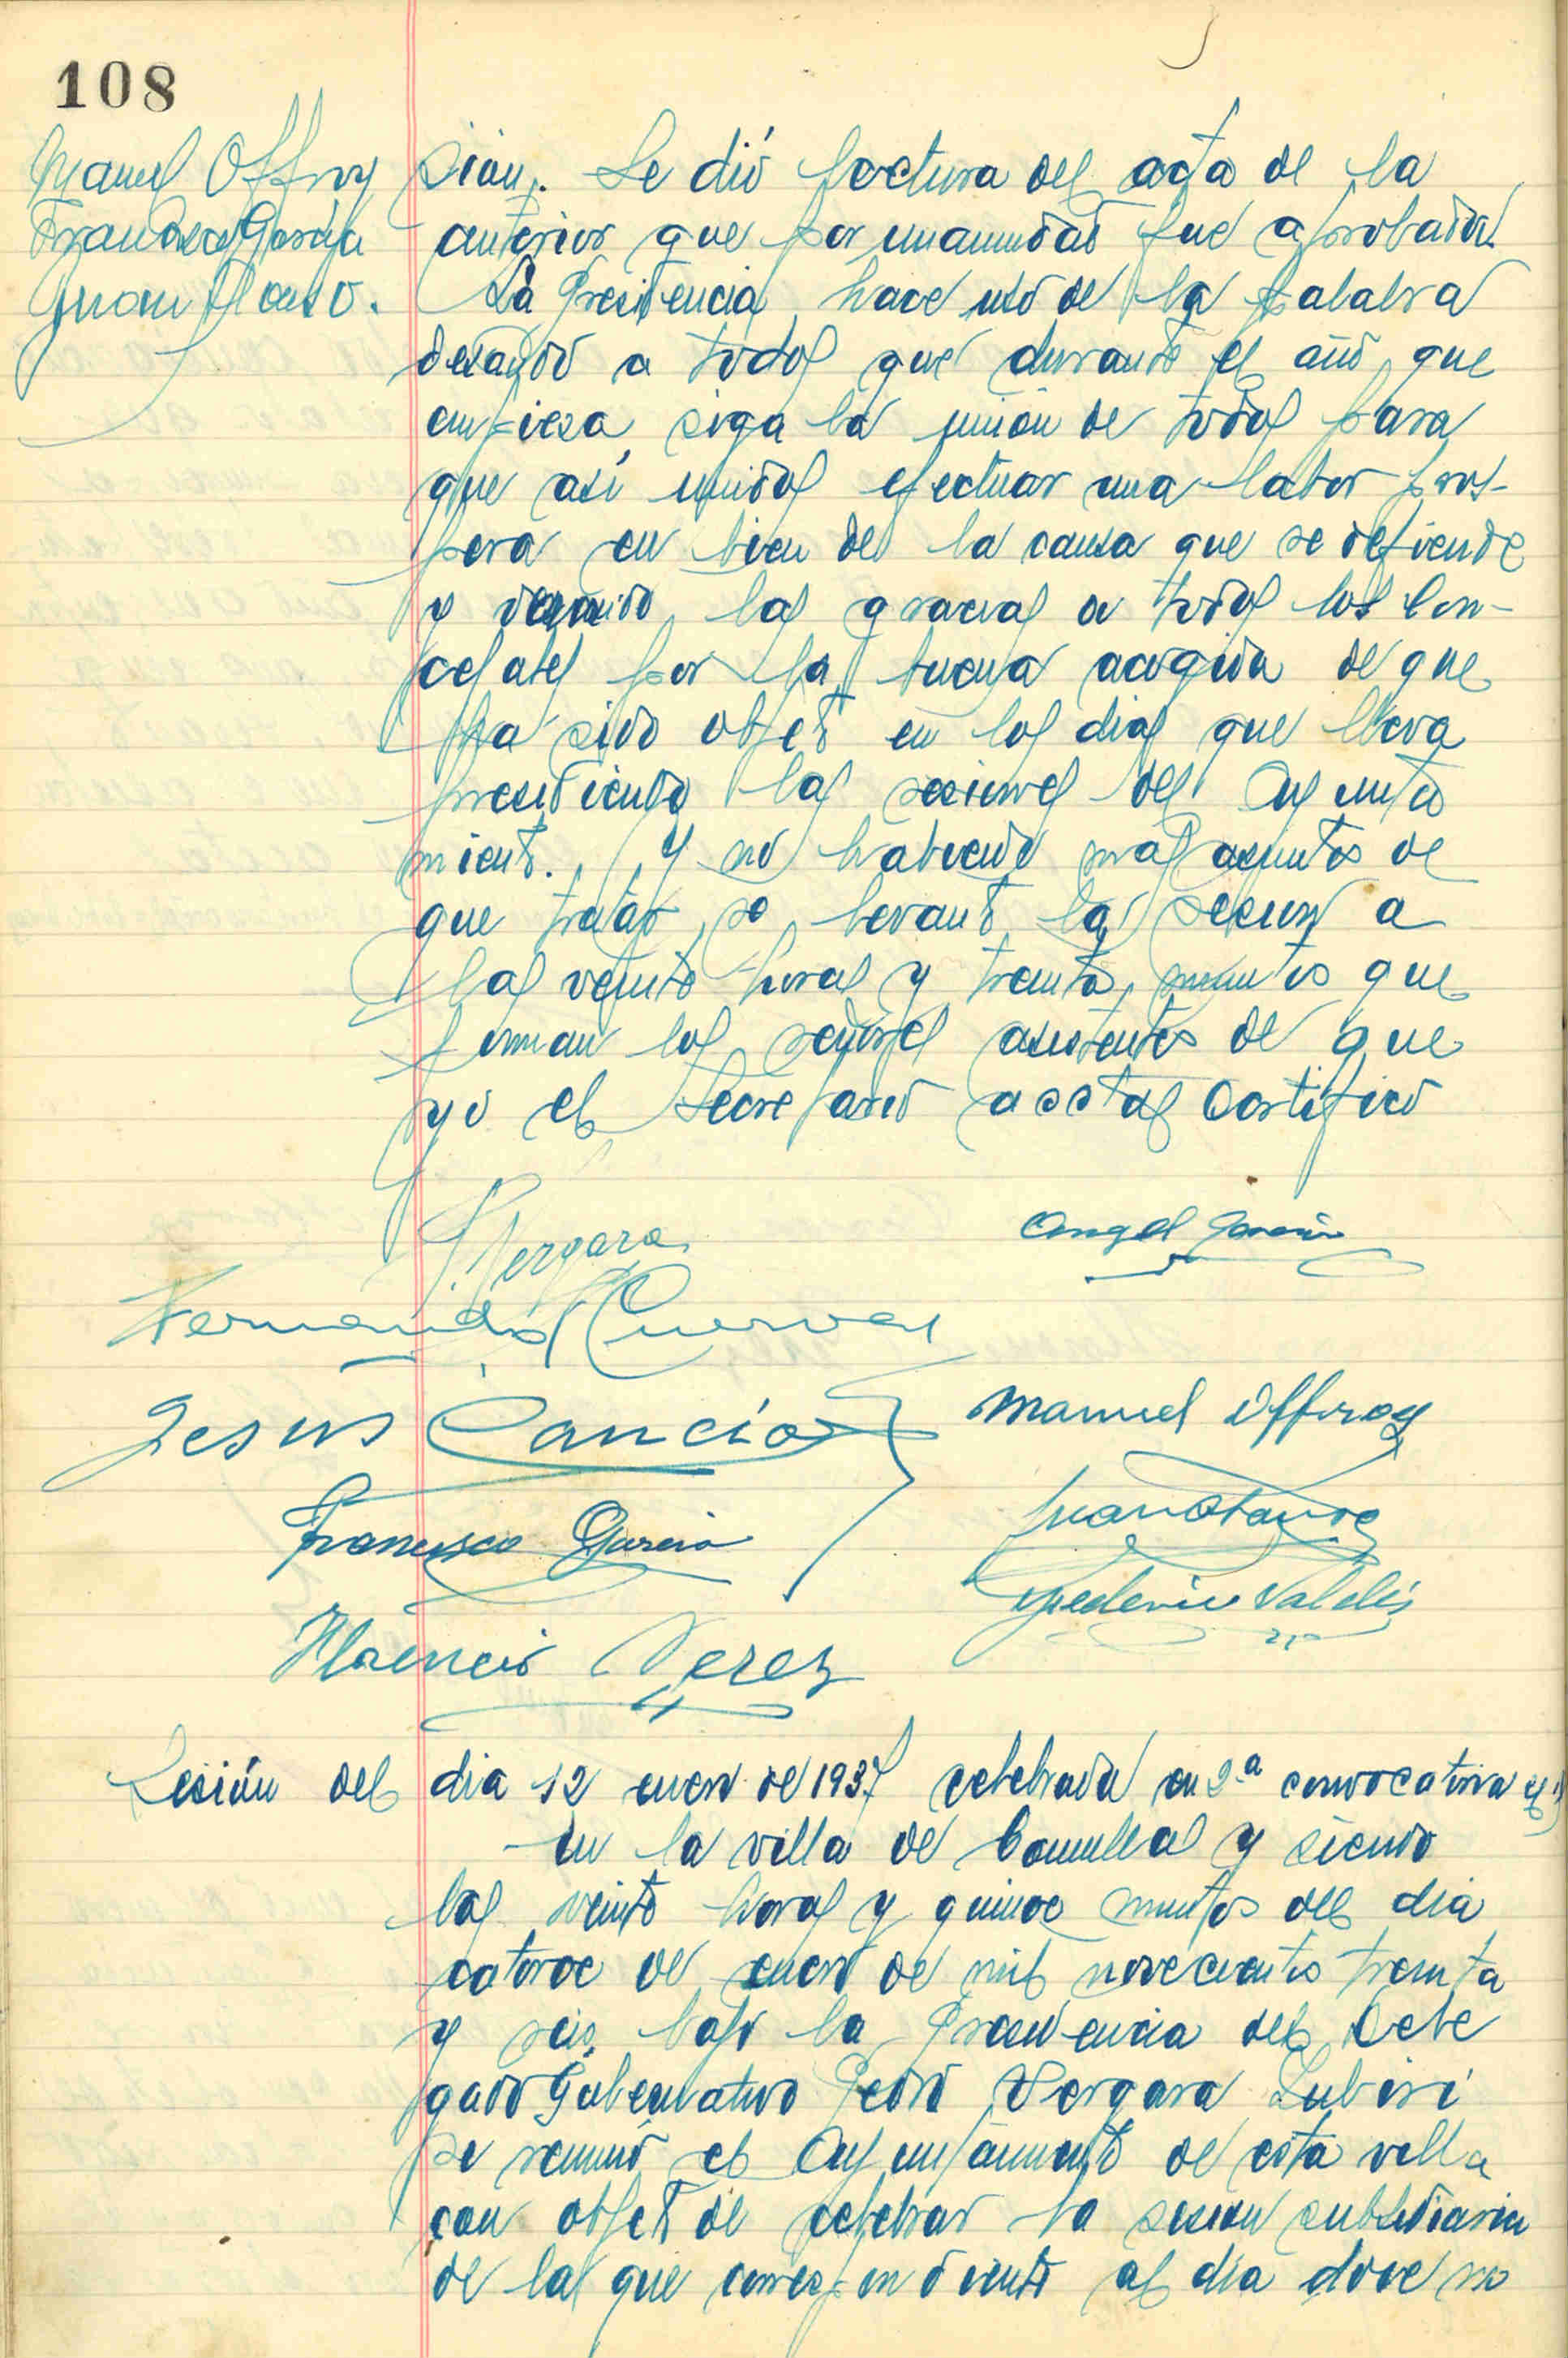 108
Manuel Offroy
Francisco García
Juan
sion. Se dió lectura del acta de la
anterior que por unanimidad fue aprobada.
La Presidencia hace uso de la palabra
deseando a todos que durante el año que
empieza siga la unión de todos para
que así unidos efectuar una labor pros-
pera en bien de la causa que se defiende
y dando las gracias a todos los Con-
cejales por la buena acogida de que
ha sido objeto en los dias que lleva
presidiendo las sesiones del Ayunta
miento. Y no habiendo mas asuntos de
que tratar se levanto la sesion a
las veinte horas y treinta minutos que
firman los señores asistentes de que
yo el Secretario acctal Certifico
P. Vergara
Angel Garcia
Fernando Cuevas
Jesus Cancio
Manuel Offroy
Francisco Garcia
Juan
Federico Valdés
Florencio Perez
Sesión del dia 12 enero de 1937 celebrada en 2ª convocatoria el
En la villa de Comillas y siendo
las veinte horas y quince minutos del dia
catorce de enero de mil novecientos treinta
y seis, bajo la Presidencia del Dele
gado Gubernativo Pedro Vergara
se reunió el Ayuntamiento de esta villa
con objeto de celebrar la sesion subsidiaria
de la que correspondiente al día doce no